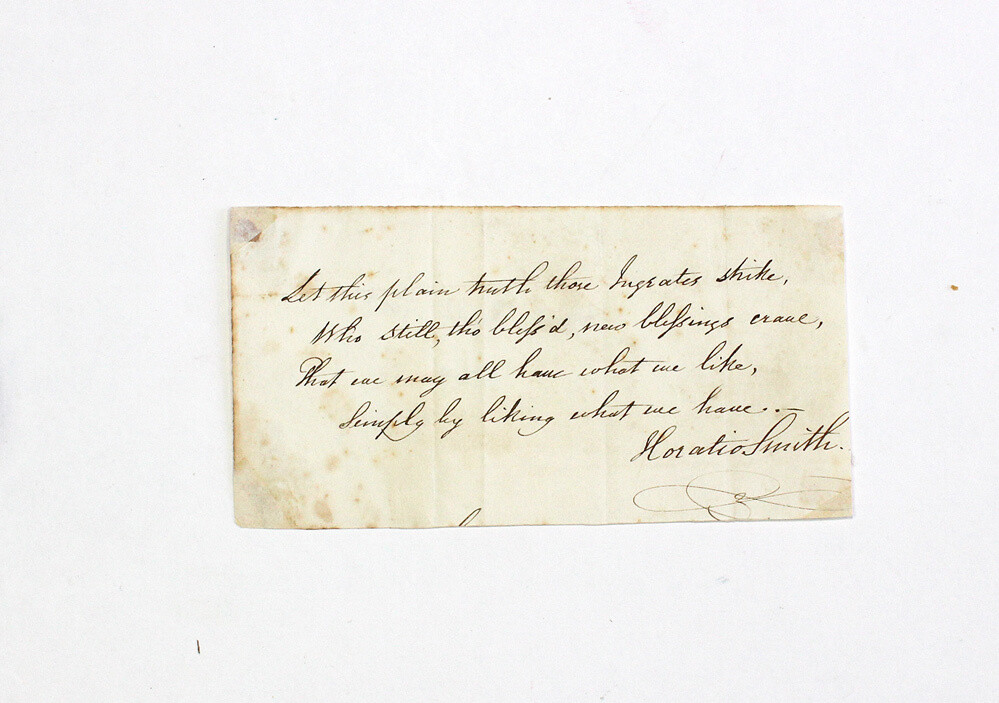 Let this plain truth those Ingrates strike,
Who still, tho' bless'd, new blessings crave,
That we may all have what we like,
Simply by liking what we have.. —
Horatio Smith.